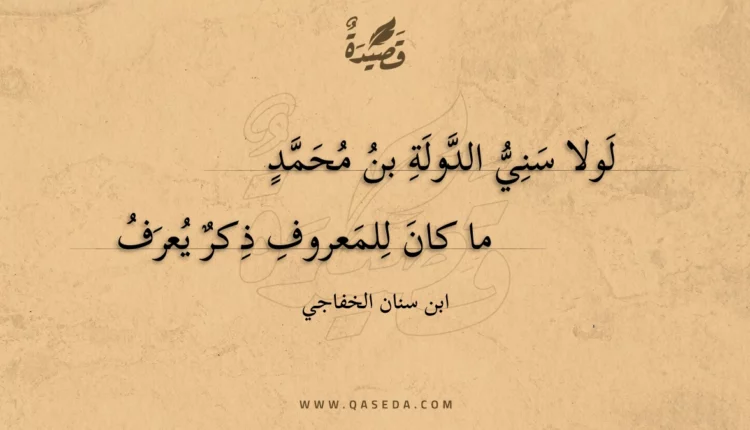 قَصِيدَةٌ
لَولا سَنِيُّ الدَّولَةِ بنُ مُحَمَّدٍ
ما كانَ لِلمَعروفِ ذِكرٌ يُعرَفُ
ابن سنان الخفاجي
WWW.QASEDA.COM